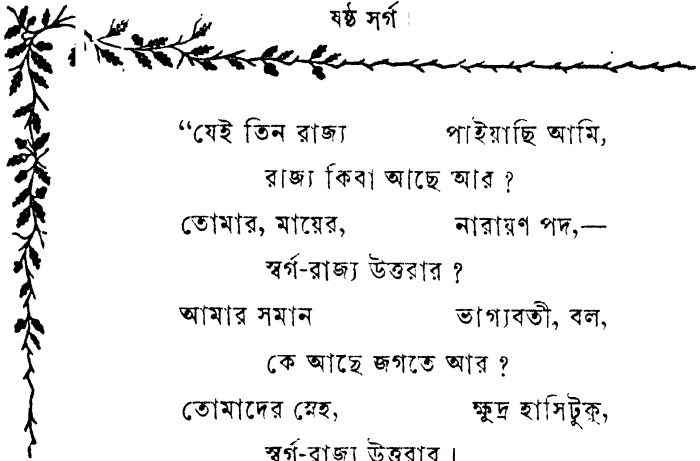 ষষ্ঠ সর্গ
“যেই তিন রাজ্য পাইয়াছি আমি,
রাজ্য কিবা আছে আর ?
তোমার, মায়ের, নারায়ণ পদ,—
স্বর্গ-রাজ্য উত্তরার ?
আমার সমান ভাগ্যবতী, বল,
কে আছে জগতে আর ?
তোমাদের স্নেহ, ক্ষুদ্র হাসিটুকু,
স্বর্গ-রাজ্য উত্তরার ।